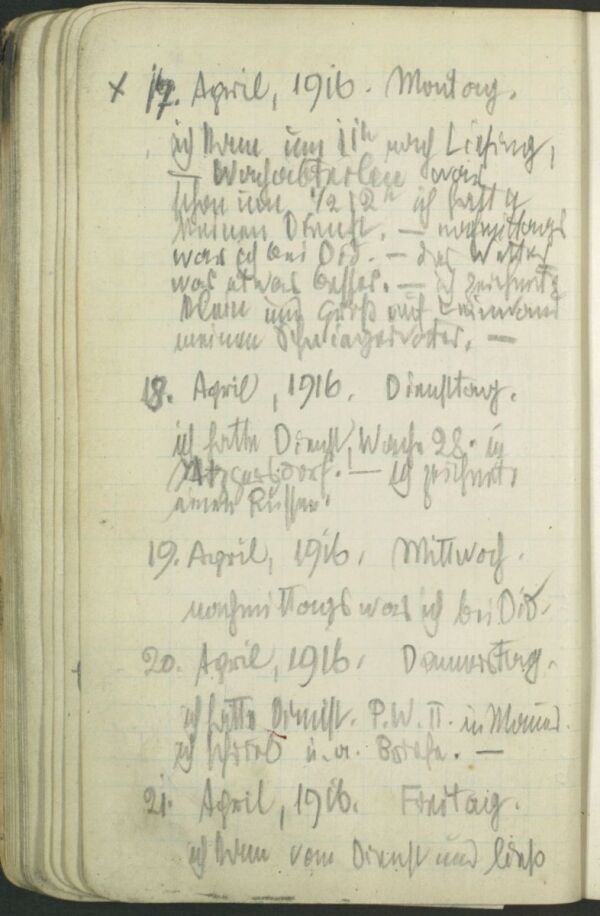 x 17. April, 1916. Montag.
ich kam um 11h nach Liesing,
— Wachabteilen war
schon um 1/2 12h ich hatte
keinen Dienst. — nachmittags
war ich bei Did. — das Wetter
war etwas besser. — ich zeichnete
klein und groß auf Leinwand
meinen Schwiegervater. —
18. April, 1916. Dienstag.
ich hatte Dienst, Wache 28. in
Atzgersdorf. — ich zeichnete
einen Russen.
19. April, 1916. Mittwoch.
nachmittags war ich bei Did.
20. April, 1916. Donnerstag.
ich hatte Dienst. P.W. II. in Mauer.
ich schrieb u. a. Briefe. —
21. April, 1916. Freitag.
ich kam vom Dienst und ließ